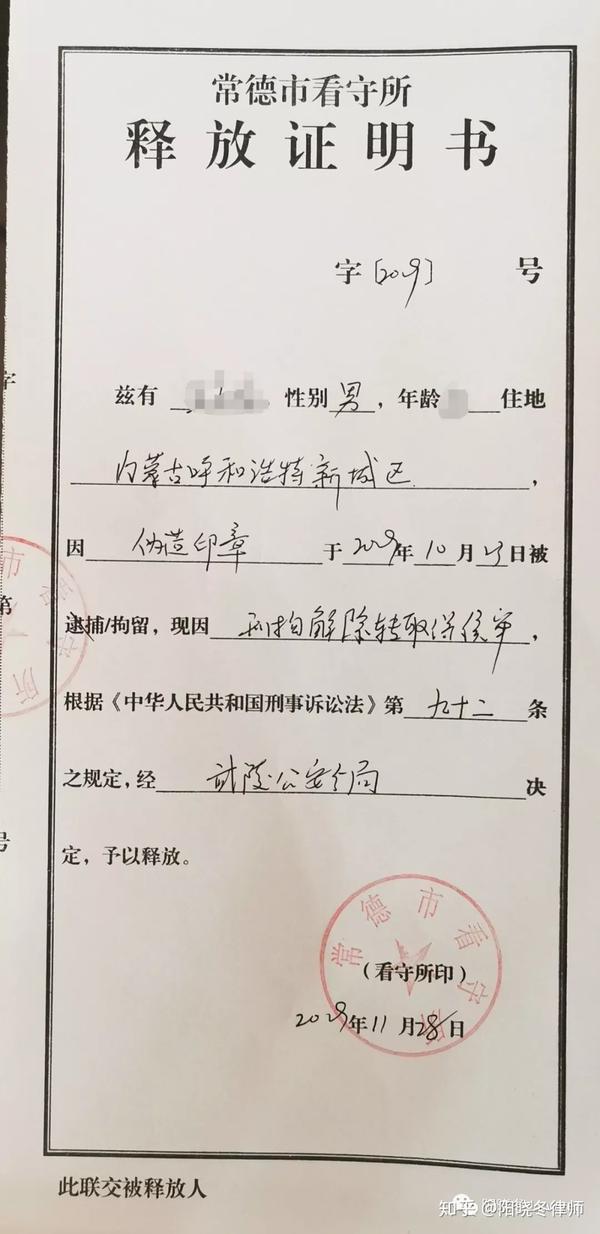 常德市看守所
释放证明书
字〔2019〕 号
兹有 性别男，年龄 住地
内蒙古呼和浩特新城区，
因 伪造印章 于2019年10月23日被
逮捕/拘留，现因 刑拘解除转取保侯审，
根据《中华人民共和国刑事诉讼法》第 九十二 条
之规定，经 武陵公安分局 决
定，予以释放。
常德市看守所
（看守所印）
2019年11月28日
此联交被释放人
字
第
号
知乎 @阳晓冬律师